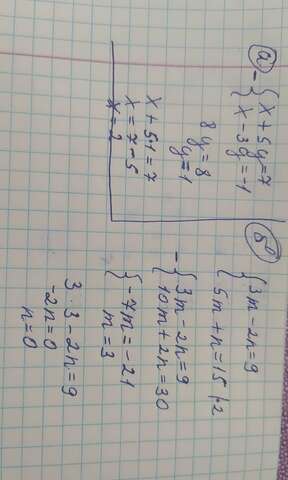 а) - { x + 5y = 7
x - 3y = -1
8y = 8
y = 1
x + 5·1 = 7
x = 7 - 5
x = 2
б) { 3m - 2n = 9
5m + n = 15 |·2
- { 3m - 2n = 9
10m + 2n = 30
{ -7m = -21
m = 3
3·3 - 2n = 9
-2n = 0
n = 0